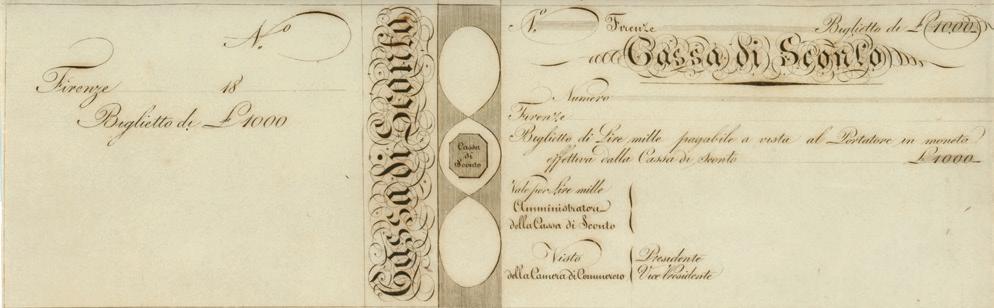 N.o
Firenze 18
Biglietto di £ 1000
Cassa di Sconto
Cassa
di
Sconto
N.o Firenze Biglietto di £ 1000
Cassa di Sconto
Numero
Firenze
Biglietto di Lire mille pagabile a vista al Portatore in moneta
effettiva dalla Cassa di Sconto £ 1000
Vale per Lire mille
Amministratore
della Cassa di Sconto
Visto
della Camera di Commercio
Presidente
Vice Presidente